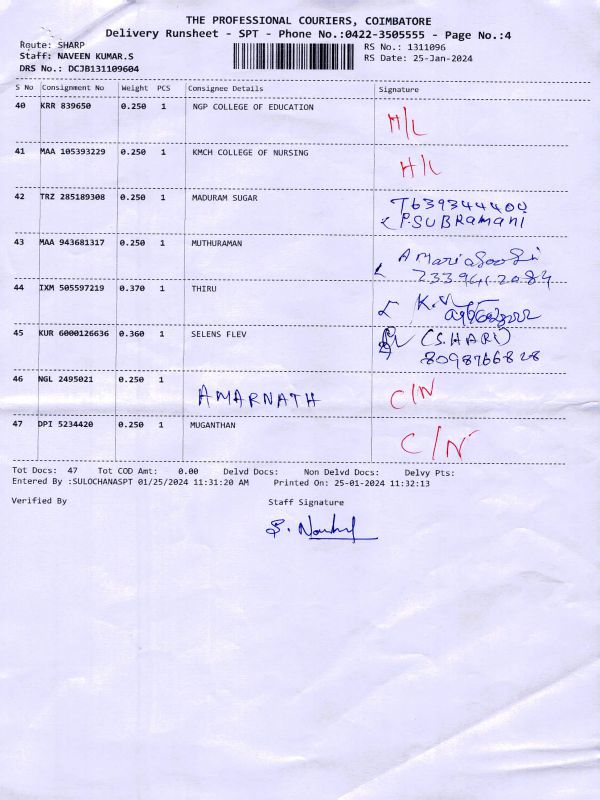 THE PROFESSIONAL COURIERS, COIMBATORE
Delivery Runsheet - SPT - Phone No.:0422-3505555 - Page No.:4
Route: SHARP
RS No.: 1311096
Staff: NAVEEN KUMAR.S
RS Date: 25-Jan-2024
DRS No.: DCJB131109604
S No Consignment No Weight PCS Consignee Details Signature
40 KRR 839650 0.250 1 NGP COLLEGE OF EDUCATION H/L
41 MAA 105393229 0.250 1 KMCH COLLEGE OF NURSING H/L
42 TRZ 285189308 0.250 1 MADURAM SUGAR
P.SUBRAMANI
43 MAA 943681317 0.250 1 MUTHURAMAN
44 IXM 505597219 0.370 1 THIRU
45 KUR 6000126636 0.360 1 SELENS FLEV (S.HARI)
8098766828
46 NGL 2495021 0.250 1 AMARNATH C/N
47 DPI 5234420 0.250 1 MUGANTHAN C/N
Tot Docs: 47 Tot COD Amt: 0.00 Delvd Docs: Non Delvd Docs: Delvy Pts:
Entered By :SULOCHANASPT 01/25/2024 11:31:20 AM Printed On: 25-01-2024 11:32:13
Verified By Staff Signature